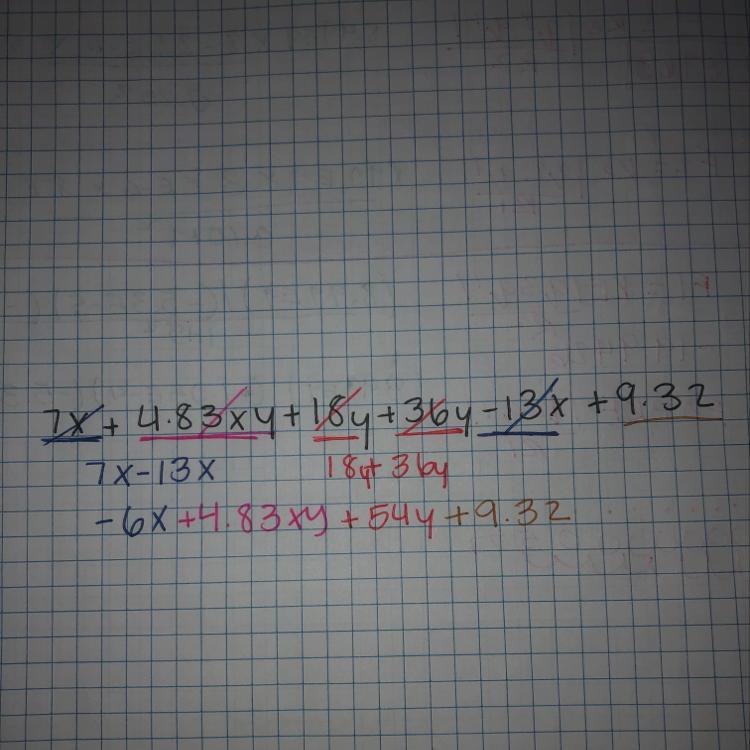 7x + 4.83xy + 18y + 36y - 13x + 9.32
7x - 13x 18y + 36y
-6x + 4.83xy + 54y + 9.32